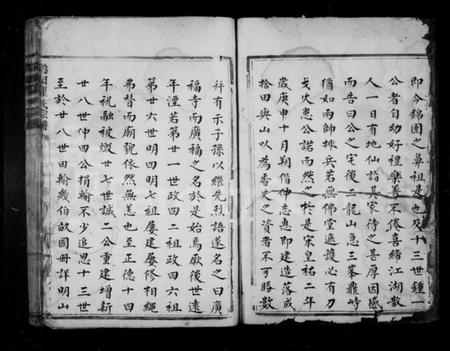 即今錦圍之鼻祖是也及十三世鍾一
公者自幼好禮樂善不倦喜締江湖散
人一日有地仙詣其家待之甚厚因感
而告曰公之宅後二龍山急三峯巃峙
猶如兩帥排兵若無佛堂遮護必有刀
戈火患公諾而然之於是宋皇祐二年
歲庚申十月朔偕仲志憲即建造落成
捨田與山以為香火之資者不可勝數
拜有示子孫以繼先烈語遂名之曰廣
福寺而廣福之名於是始焉厥後世遠
年湮若第廿一世政四二祖政四六祖
第廿六世明四明七祖屢建屢修相繩
弗替而廟貌依然無恙也至正德十四
年祝融被燬廿七世誠二公重建增新
廿八世仲四公捐輸不少追思十三世
至於廿八世田輸幾伯畝國冊詳明山